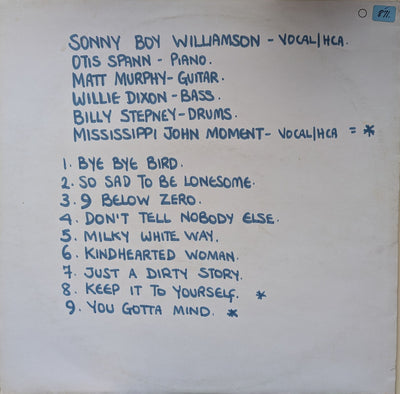 871.
SONNY BOY WILLIAMSON - VOCAL/HCA.
OTIS SPANN - PIANO.
MATT MURPHY - GUITAR.
WILLIE DIXON - BASS.
BILLY STEPNEY - DRUMS.
MISSISSIPPI JOHN MOMENT - VOCAL/HCA = *
1. BYE BYE BIRD.
2. SO SAD TO BE LONESOME.
3. 9 BELOW ZERO.
4. DON'T TELL NOBODY ELSE.
5. MILKY WHITE WAY.
6. KINDHEARTED WOMAN.
7. JUST A DIRTY STORY.
8. KEEP IT TO YOURSELF. *
9. YOU GOTTA MIND. *